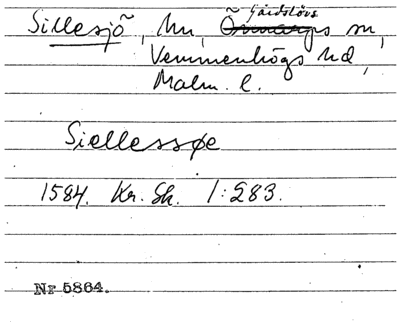 Sillesjö, hn, Gärdslövs sn,
Vemmenhögs hd,
Malm. l.
Siellessøe
1584. Kr. Sk. 1:283.
Nr 5864.